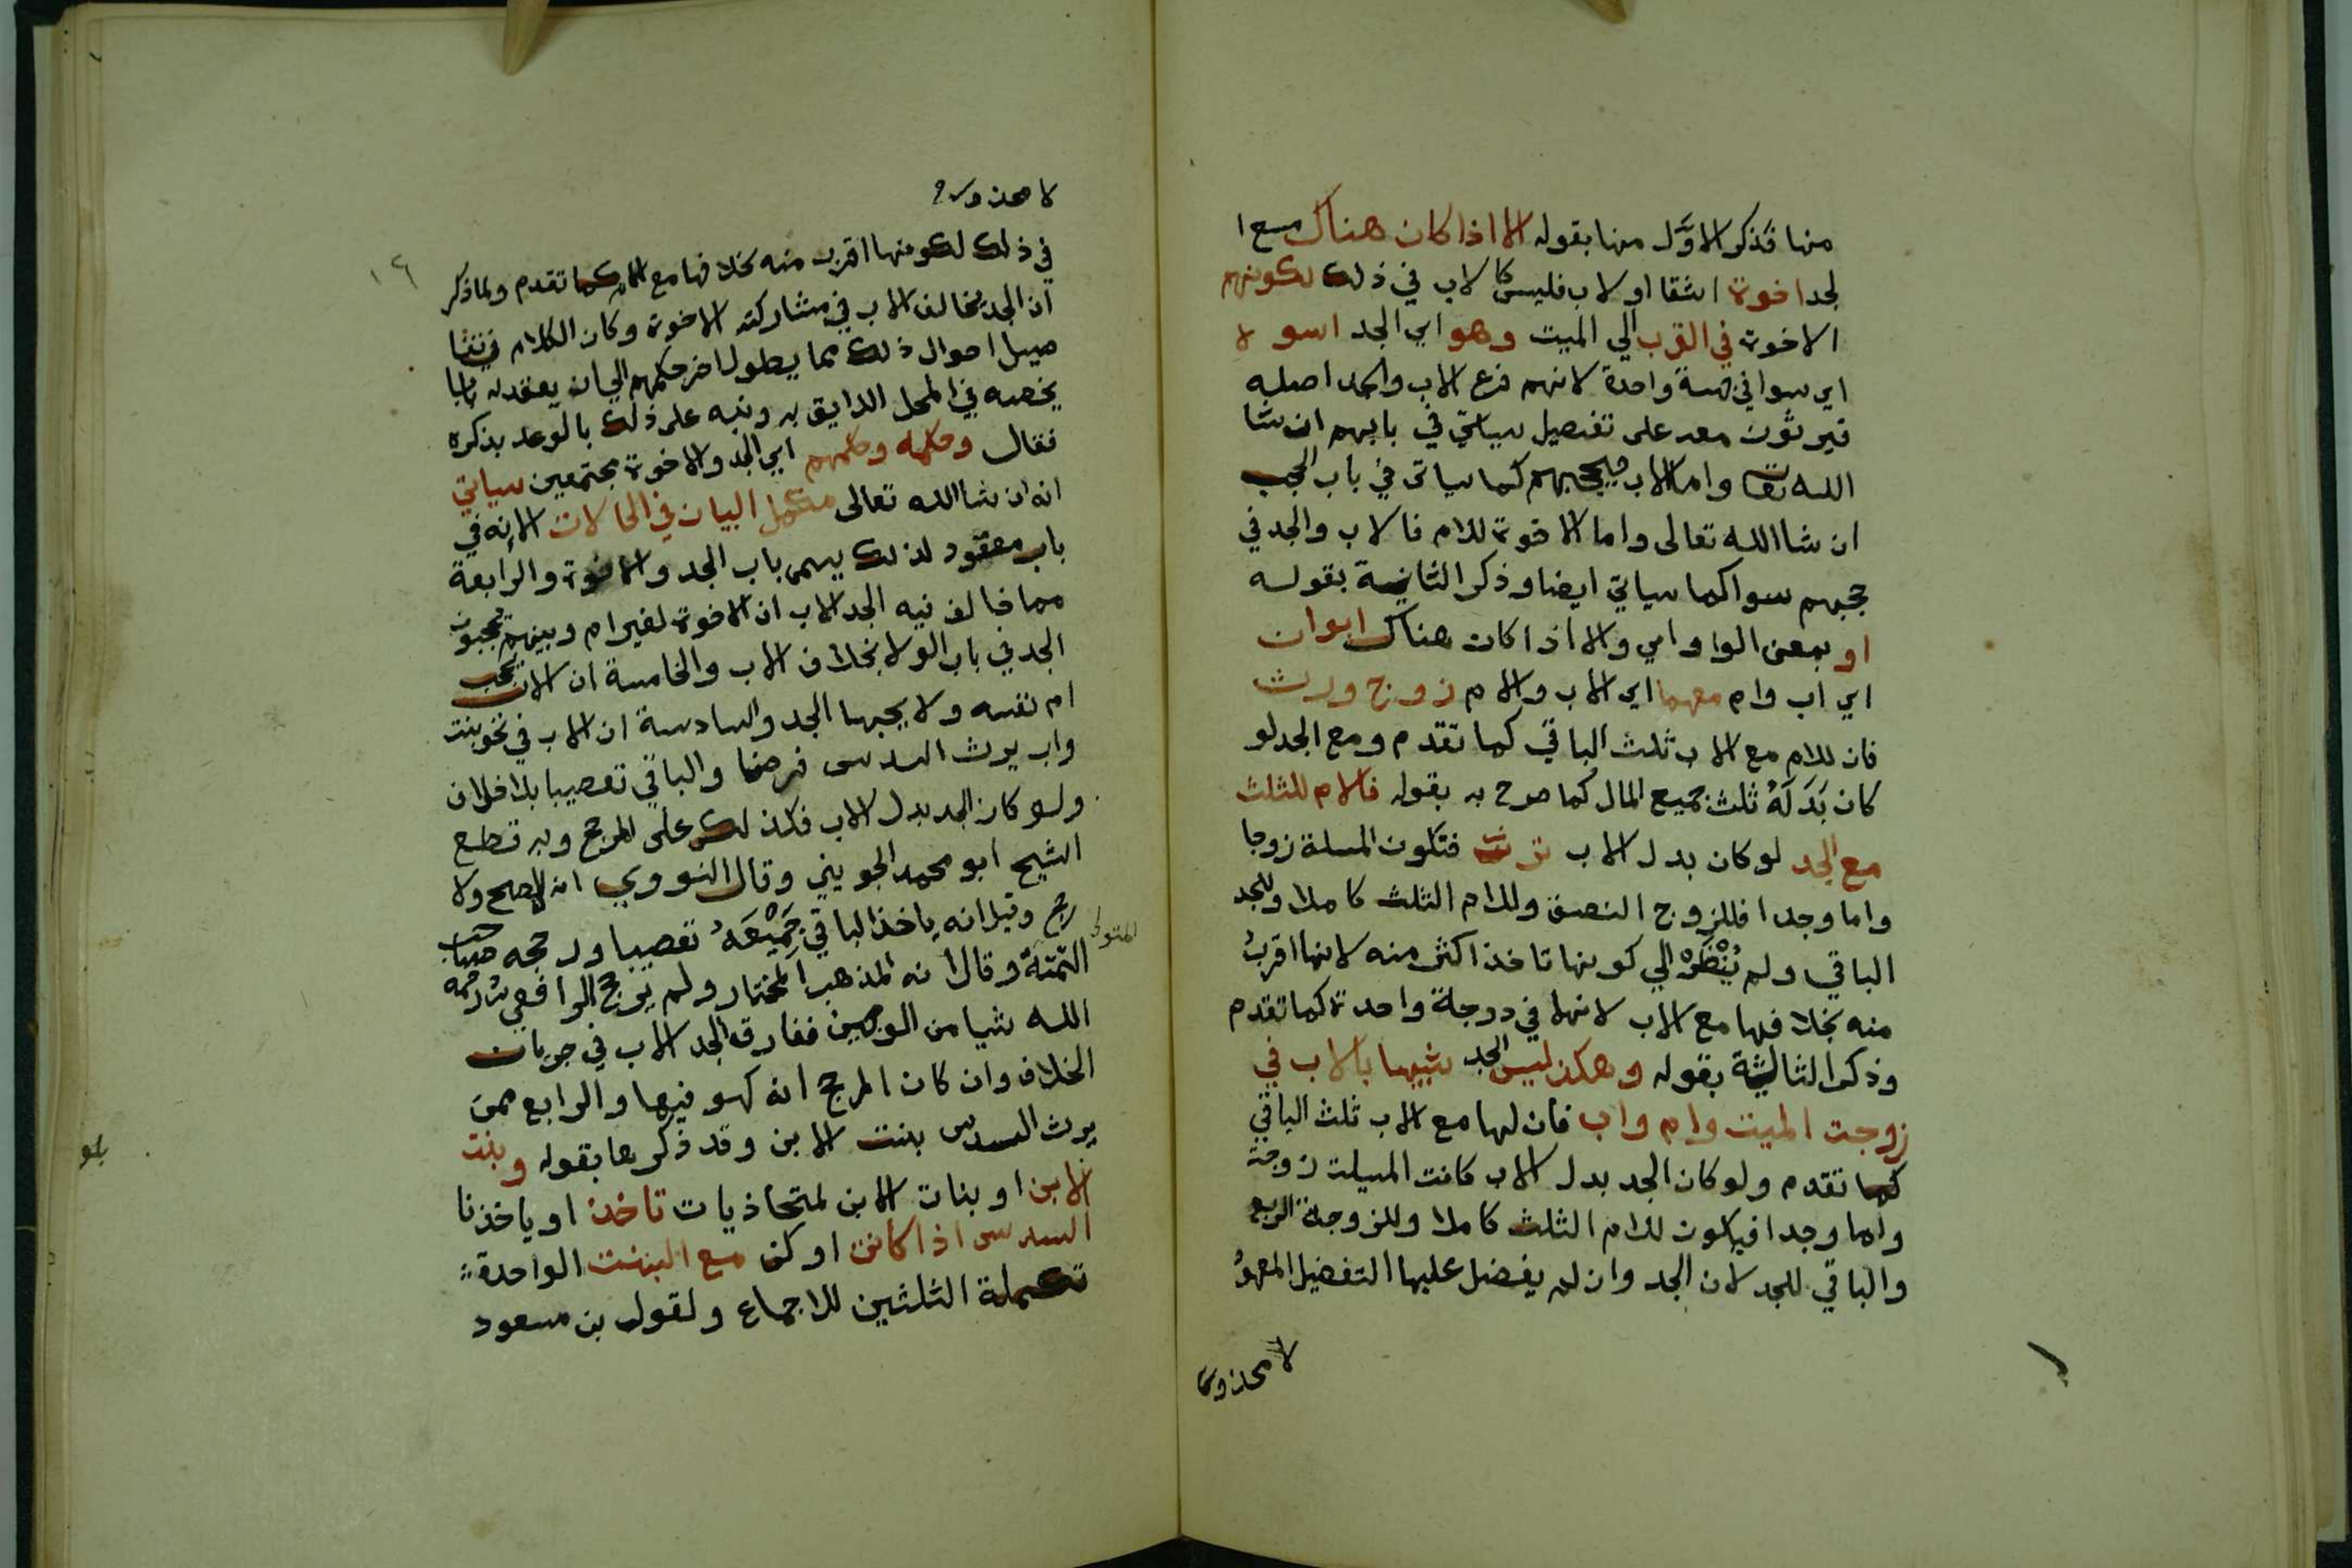 منها فذكر الاوَّل منها بقوله الا اذا كان هناك مع ا
لجد اخوة اشقا او لاب فليس كالاب في ذلك لكونهم
الاخوة في القرب الي الميت وهو اي الجد اسو لا
اي سوا في جهة واحدة لانهم فرع الاب والجد اصله
فيرثون معه على تفصيل سياتي في بابهم ان شا
الله تعا واما الاب فيحجبهم كما سياتي في باب الحجب
ان شا الله تعالى واما الاخوة للام فالاب والجد في
حجبهم سوا كما سياتي ايضا وذكر الثانية بقوله
او بمعني الواو امي والا اذا كان هناك ابوان
اي اب وام معهما اي الاب والام زوج ورث
فان للام مع الاب ثلث الباقي كما تقدم ومع الجد لو
كان بَدَلَهُ ثلث جميع المال كما صرح به بقوله فالام للثلث
مع الجد لو كان بدل الاب ترث فتكون المسلة زوجا
واما وجدا فللزوج النصف وللام الثلث كاملا وللجد
الباقي ولم يُنْظَرْ الي كونها تاخذ اكثر منه لانها اقربُ
منه بخلافها مع الاب لانها في درجة واحدة كما تقدم
وذكر الثالثة بقوله وهكذا ليس الجد شبيها بالاب في
زوجت الميت وام واب فان لها مع الاب ثلث الباقي
كما تقدم ولو كان الجد بدل الاب كانت المسيلة زوجة
واما وجدا فيكون للام الثلث كاملا وللزوجة الربع
والباقي للجد لان الجد وان لم يفضل عليها التفضيل المعهودُ
لا محذور
لا محذور
١٦
في ذلك لكونها اقرب منه بخلافها مع الاب كما تقدم ولما ذكر
ان الجد يخالف الاب في مشاركته الاخوة وكان الكلام في تفا
صيل احوال ذلك مما يطول اخر حكمهم الي ان يعقد له بابا
يخصه في المحل اللايق به ونبه على ذلك بالوعد بذكره
فقال وحكمه وحكمهم اي الجد والاخوة مجتمعين سياتي
انه ان شا الله تعالى مكمل البيان في الحالات الاته في
باب معقود لذلك يسمى باب الجد والاخوة والرابعة
مما خالف فيه الجد الاب ان الاخوة لغير ام وبينهم يحجبون
الجد في باب الولا بخلاف الاب والخامسة ان الاب يحجب
ام نفسه ولا يحجبها الجد والسادسة ان الاب في نحو بنت
واب يرث السدس فرضا والباقي تعصيبا بلا خلاف
ولو كان الجد بدل الاب فكذلك على المرجح وبه قطع
الشيخ ابو محمد الجويني وقال النووي انه الاصح ولا
رجح وقيل انه ياخذ الباقي جَمِيْعَهُ تعصيبا ورجحه صاحب
التتمة وقال انه المذهب المختار ولم يرجح الرافعي رحمه
المتولي
الله شيا من الوجهين ففارق الجد الاب في جريان
الخلاف وان كان المرجح انه كهو فيها والرابع ممن
يرث السدس بنت الابن وقد ذكرها بقوله وبنت
الابن او بنات الابن لمتحاذيات تاخذ او ياخذنا
السدس اذا كانت او كن مع البنت الواحدة
تكملة الثلثين للاجماع ولقول بن مسعود